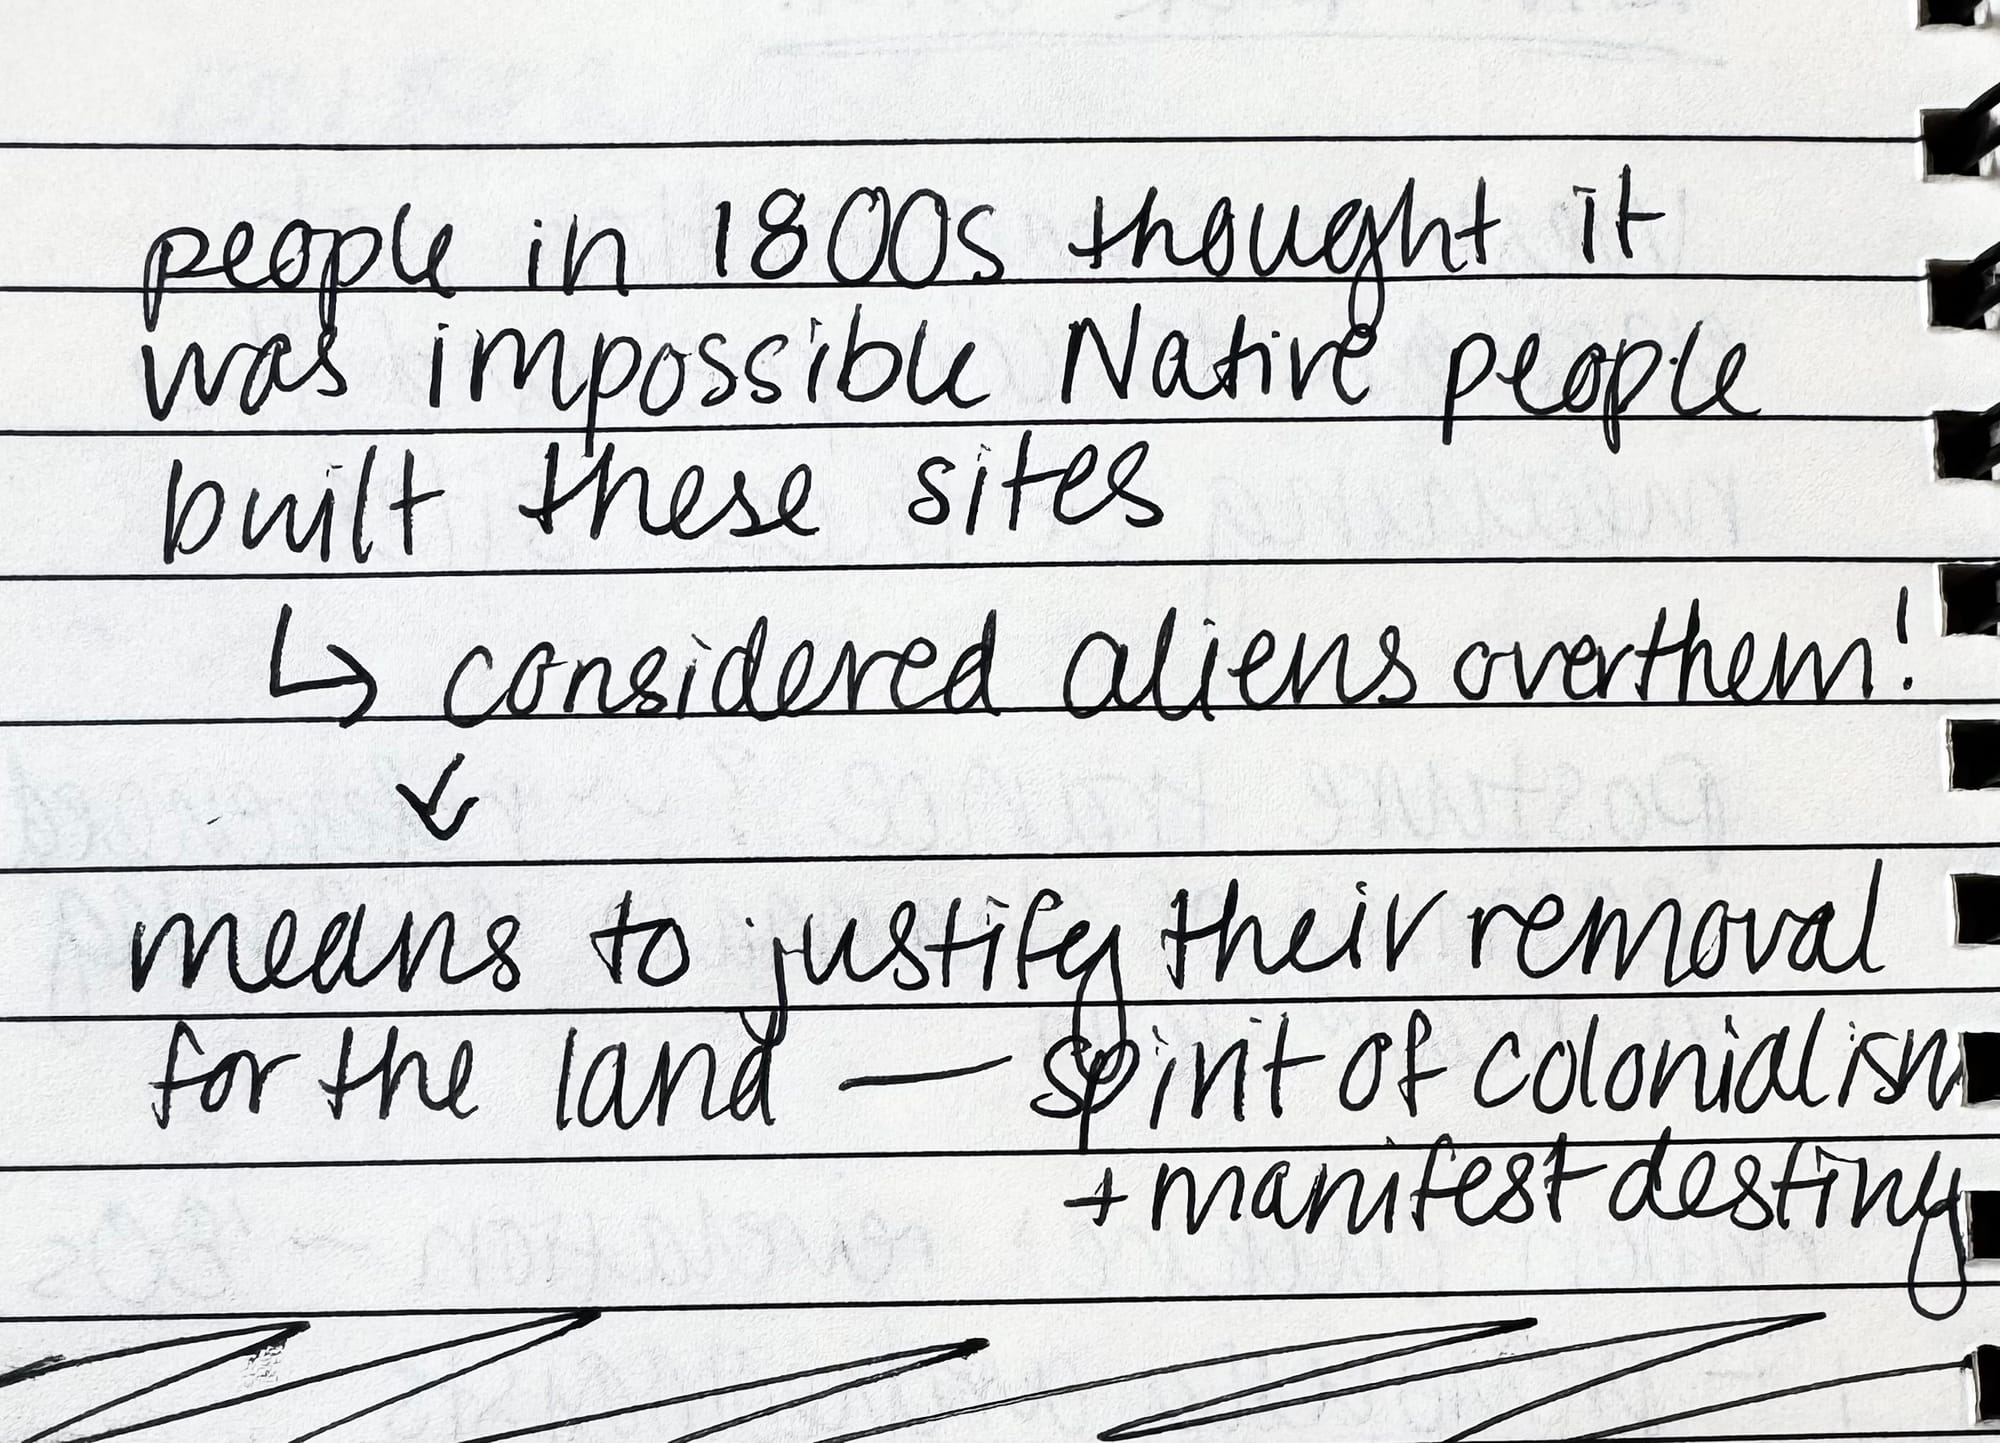 people in 1800s thought it
was impossible Native people
built these sites
↳ considered aliens over them!
↓
means to justify their removal
for the land — spirit of colonialism
+ manifest destiny